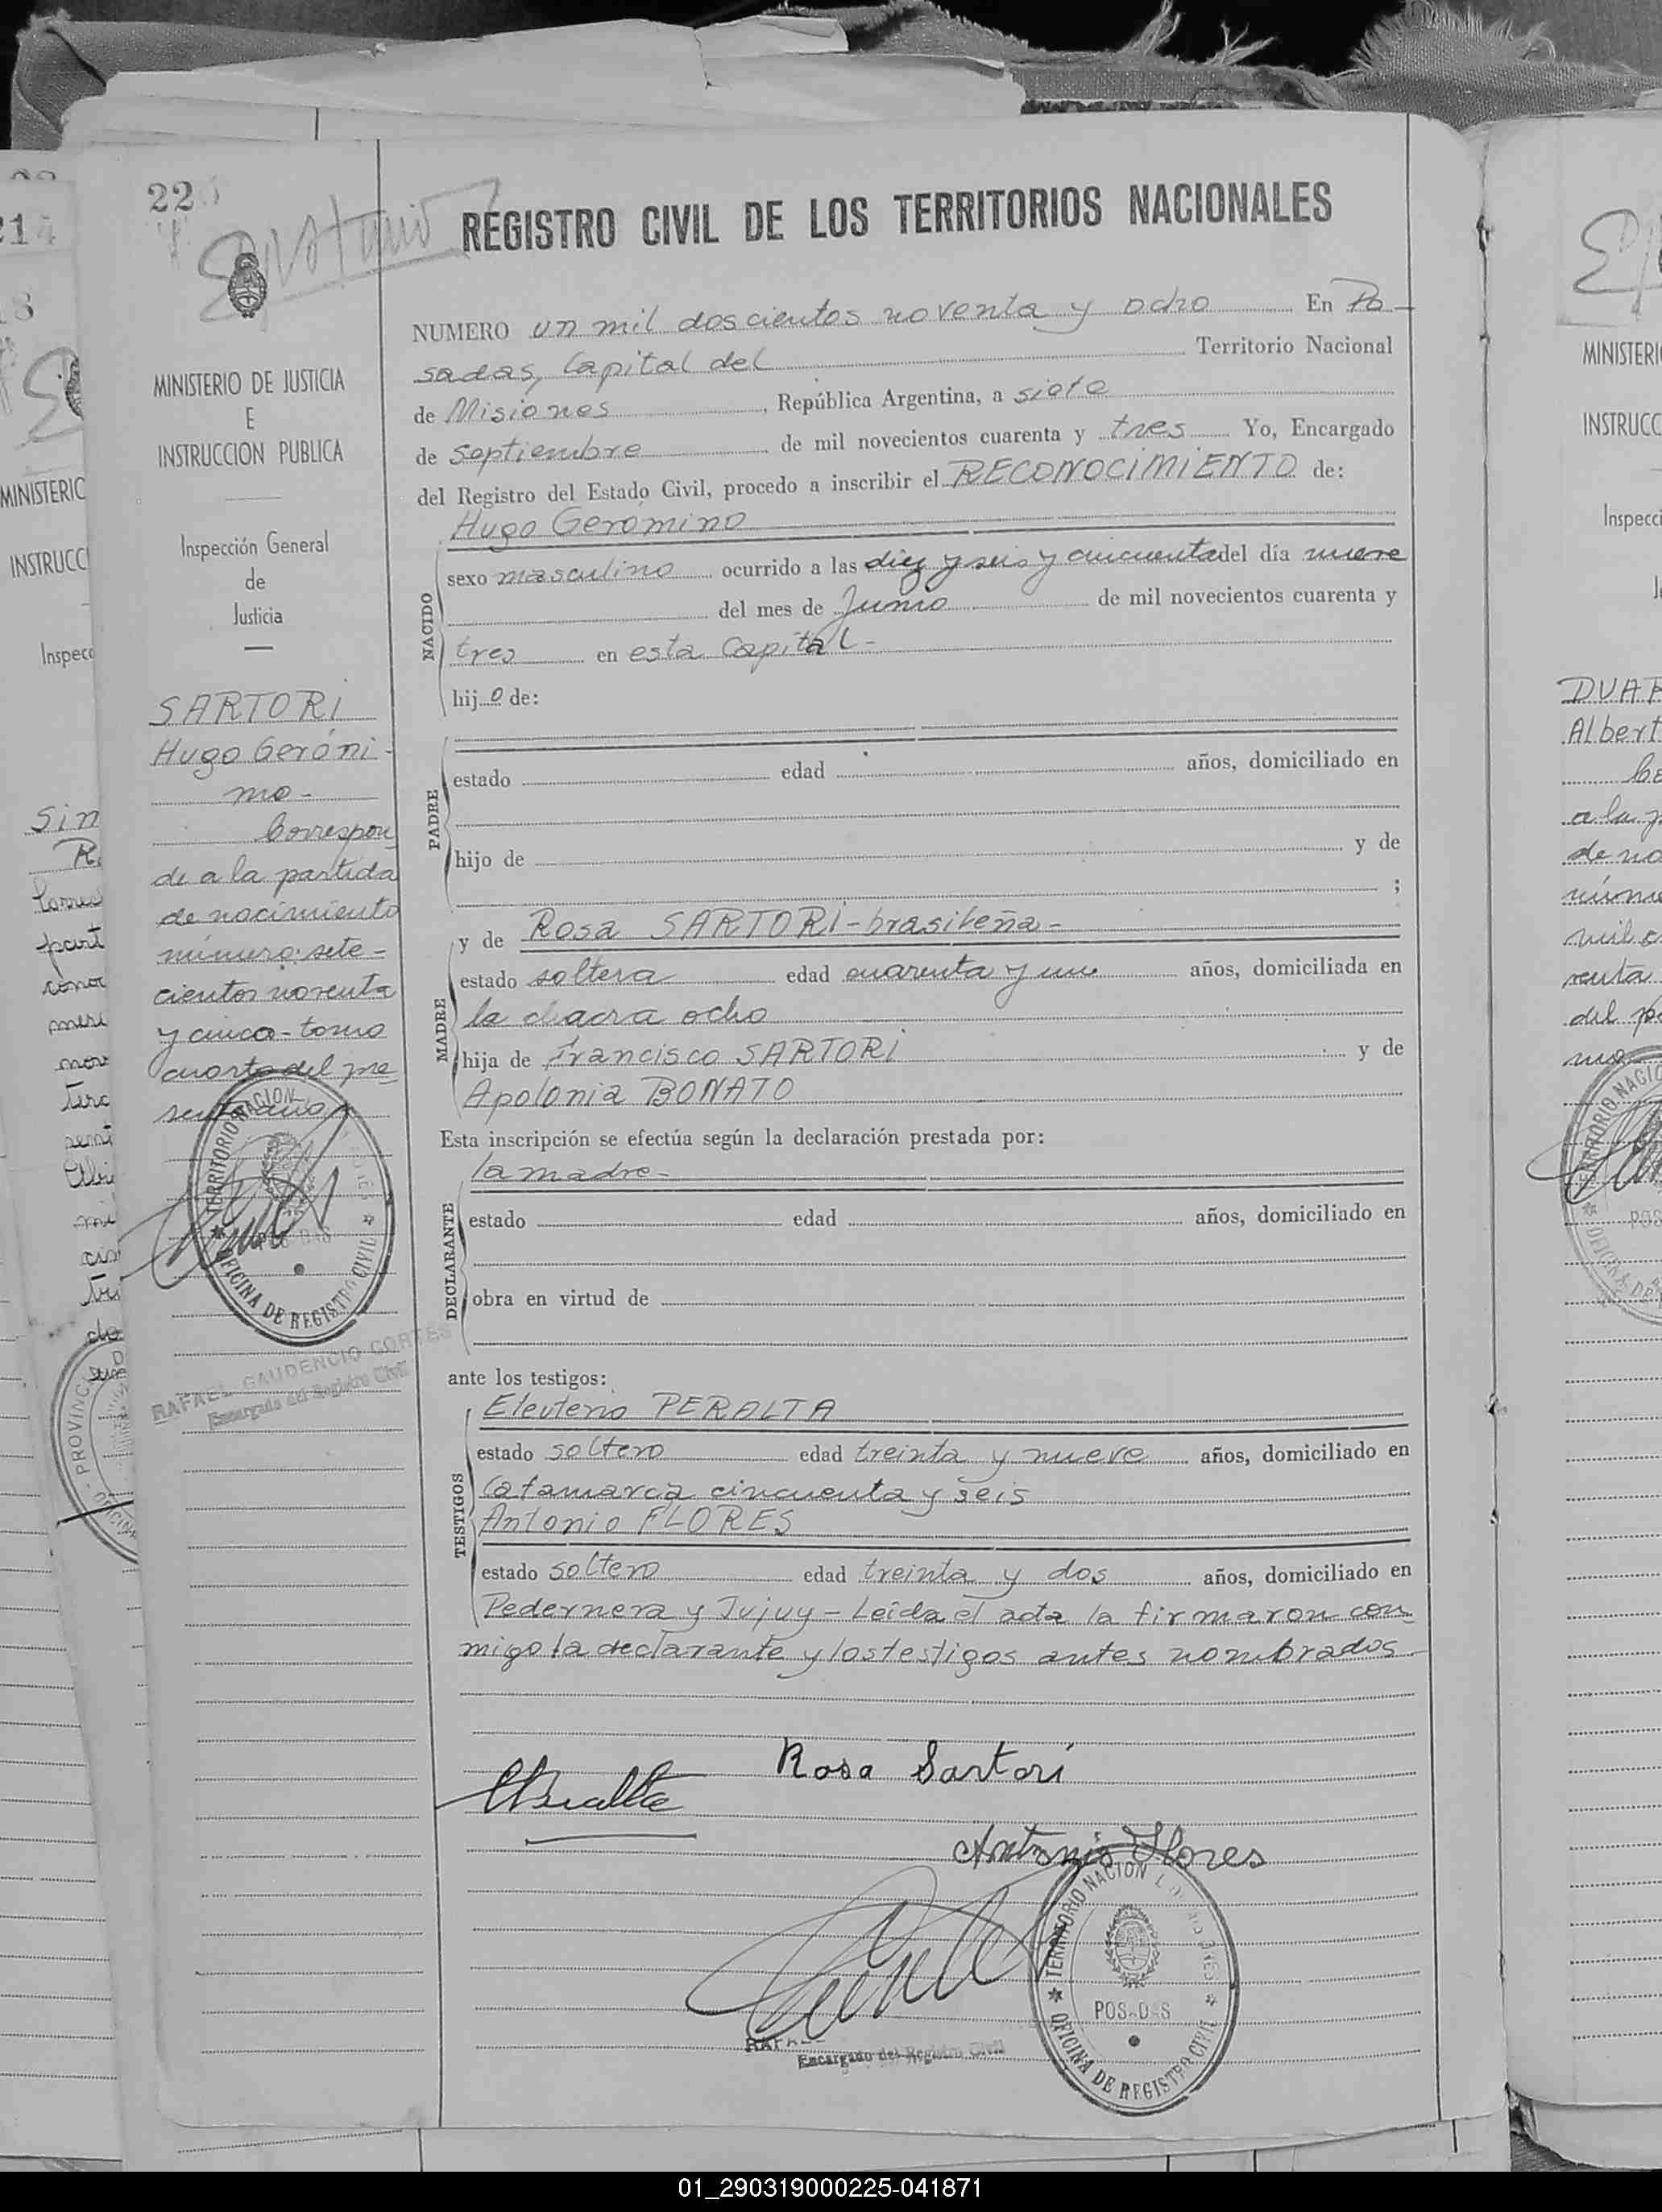 22
REGISTRO CIVIL DE LOS TERRITORIOS NACIONALES
MINISTERIO DE JUSTICIA
E
INSTRUCCION PUBLICA
Inspección General
de
Justicia
SARTORI
Hugo Geróni-
mo-
Correspon
de a la partida
de nacimiento
número: sete-
cientos noventa
y cinco - tomo
cuarto del pre
sente año
TERRITORIO NACION
OFICINA DE REGISTRO CIVIL
RAFAEL GAUDENCIO CORTES
Encargado del Registro Civil
NUMERO un mil doscientos noventa y ocho En Po-
sadas, Capital del Territorio Nacional
de Misiones, República Argentina, a siete
de septiembre de mil novecientos cuarenta y tres Yo, Encargado
del Registro del Estado Civil, procedo a inscribir el RECONOCIMIENTO de:
Hugo Gerómino
NACIDO
sexo masculino ocurrido a las diez y seis y cincuenta del día nueve
del mes de Junio de mil novecientos cuarenta y
tres en esta Capital-
hijo de:
PADRE
estado edad años, domiciliado en
hijo de y de
;
y de Rosa SARTORI-brasileña-
MADRE
estado soltera edad cuarenta y un años, domiciliada en
la chacra ocho
hija de Francisco SARTORI y de
Apolonia BONATO
Esta inscripción se efectúa según la declaración prestada por:
la madre-
DECLARANTE
estado edad años, domiciliado en
obra en virtud de
ante los testigos:
Eleuterio PERALTA
TESTIGOS
estado soltero edad treinta y nueve años, domiciliado en
Catamarca cincuenta y seis
Antonio FLORES
estado soltero edad treinta y dos años, domiciliado en
Pedernera y Jujuy - Leída el acta la firmaron con
migo la declarante y los testigos antes nombrados
Rosa Sartori
EPeralta
Antonio Flores
TERRITORIO NACION
POSADAS
OFICINA DE REGISTRO CIVIL
Encargado del Registro Civil
01_290319000225-041871